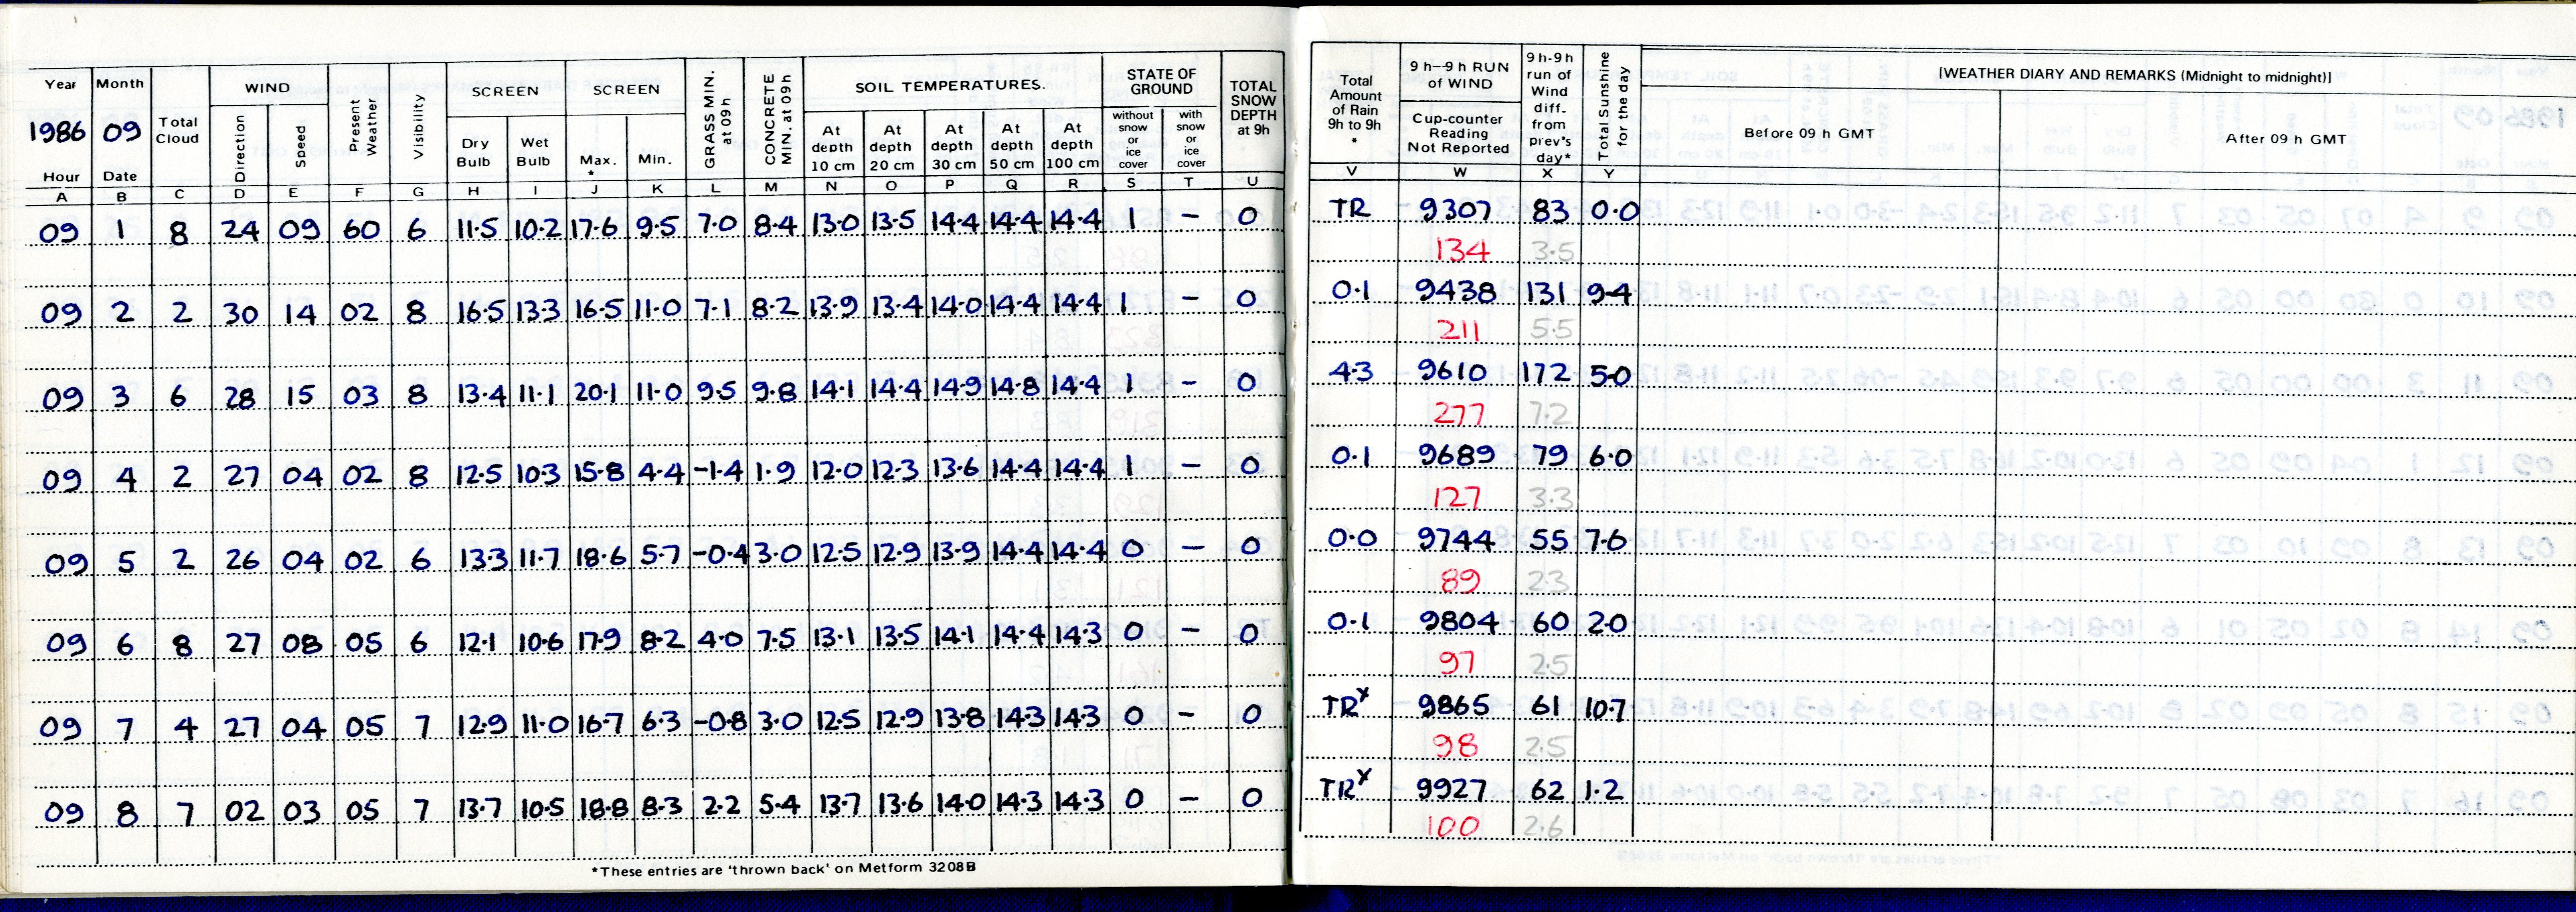 Year Month Total Cloud WIND Present Weather Visibility SCREEN SCREEN GRASS MIN. at 09h CONCRETE MIN. at 09h SOIL TEMPERATURES. STATE OF GROUND TOTAL SNOW DEPTH at 9h
1986 09 Direction Speed Dry Bulb Wet Bulb Max. * Min. At depth 10 cm At depth 20 cm At depth 30 cm At depth 50 cm At depth 100 cm without snow or ice cover with snow or ice cover
Hour Date
A B C D E F G H I J K L M N O P Q R S T U
09 1 8 24 09 60 6 11.5 10.2 17.6 9.5 7.0 8.4 13.0 13.5 14.4 14.4 14.4 1 – 0
09 2 2 30 14 02 8 16.5 13.3 16.5 11.0 7.1 8.2 13.9 13.4 14.0 14.4 14.4 1 – 0
09 3 6 28 15 03 8 13.4 11.1 20.1 11.0 9.5 9.8 14.1 14.4 14.9 14.8 14.4 1 – 0
09 4 2 27 04 02 8 12.5 10.3 15.8 4.4 -1.4 1.9 12.0 12.3 13.6 14.4 14.4 1 – 0
09 5 2 26 04 02 6 13.3 11.7 18.6 5.7 -0.4 3.0 12.5 12.9 13.9 14.4 14.4 0 – 0
09 6 8 27 08 05 6 12.1 10.6 17.9 8.2 4.0 7.5 13.1 13.5 14.1 14.4 14.3 0 – 0
09 7 4 27 04 05 7 12.9 11.0 16.7 6.3 -0.8 3.0 12.5 12.9 13.8 14.3 14.3 0 – 0
09 8 7 02 03 05 7 13.7 10.5 18.8 8.3 2.2 5.4 13.7 13.6 14.0 14.3 14.3 0 – 0
*These entries are 'thrown back' on Metform 3208B
Total Amount of Rain 9h to 9h * 9h–9h RUN of WIND Cup-counter Reading Not Reported 9h-9h run of Wind diff. from prev's day* Total Sunshine for the day [WEATHER DIARY AND REMARKS (Midnight to midnight)]
Before 09 h GMT After 09 h GMT
V W X Y
TR 9307 83 0.0
134 3.5
0.1 9438 131 9.4
211 5.5
4.3 9610 172 5.0
277 7.2
0.1 9689 79 6.0
127 3.3
0.0 9744 55 7.6
89 2.3
0.1 9804 60 2.0
97 2.5
TRx 9865 61 10.7
98 2.5
TRx 9927 62 1.2
100 2.6